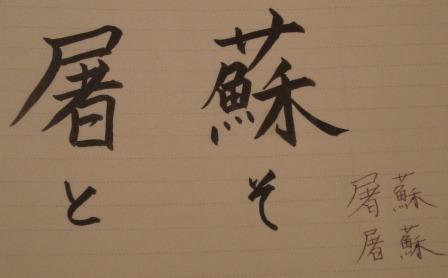 屠蘇
とそ
屠蘇
屠蘇